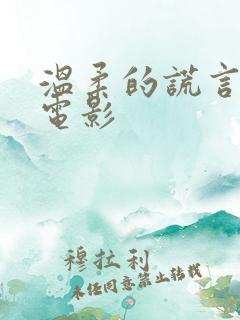 溫柔的謊言
電影
穆拉利
未经同意禁止转载